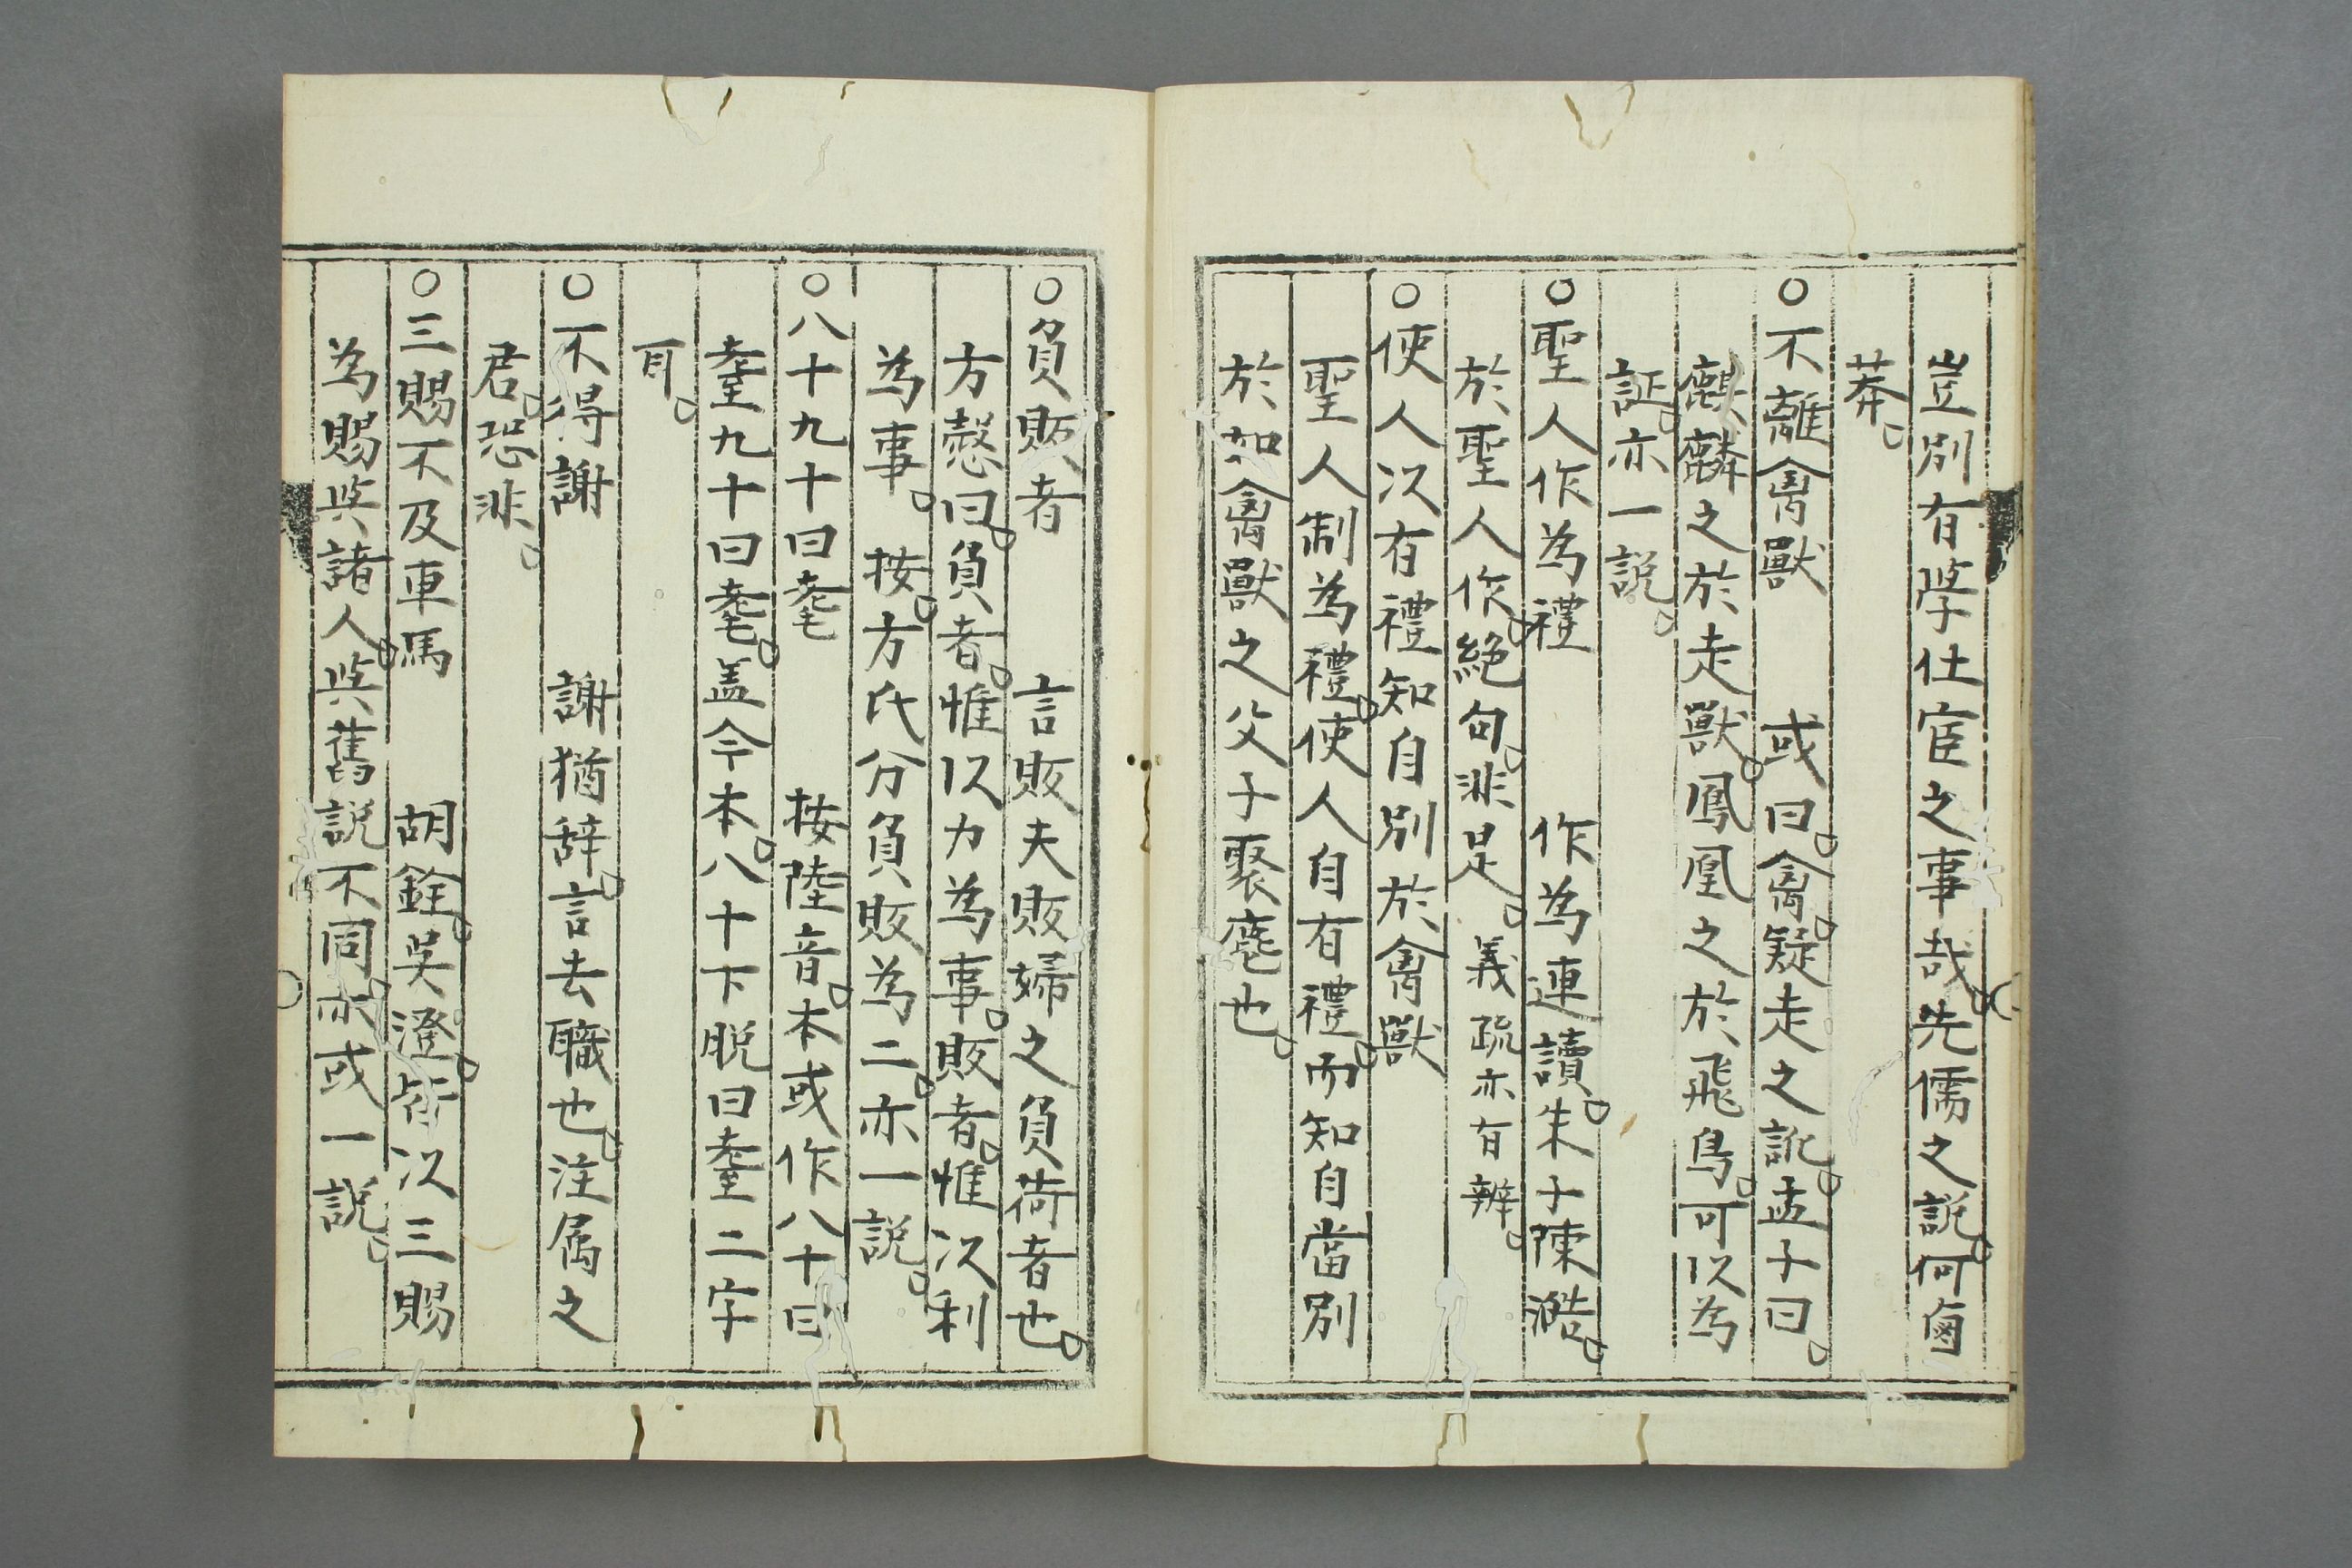 豈別有學仕宦之事哉先儒之説何鹵
莽
○不離禽獸　或曰禽疑走之訛孟子曰
麒麟之於走獸鳳凰之於飛鳥可以為
証亦一説
○聖人作為禮　作為連讀朱子陳澔
於聖人作絶句非是　義疏亦有辨
○使人以有禮知自別於禽獸
聖人制為禮使人自有禮而知自當別
於如禽獸之父子聚麀也
○負販者　言販夫販婦之負荷者也
方慤曰負者惟以力為事販者惟以利
為事　按方氏分負販為二亦一説
○八十九十曰耄　按陸音本或作八十曰
耋九十曰耄盖今本八十下脱曰耋二字
耳
○不得謝　謝猶辭言去職也注属之
君恐非
○三賜不及車馬　胡銓吳澄皆以三賜
為賜與諸人與舊説不同亦或一説